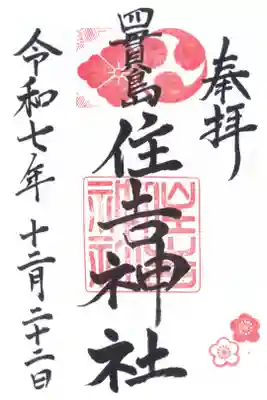 奉拝
四貫島
住吉神社
令和七年 十二月二十二日